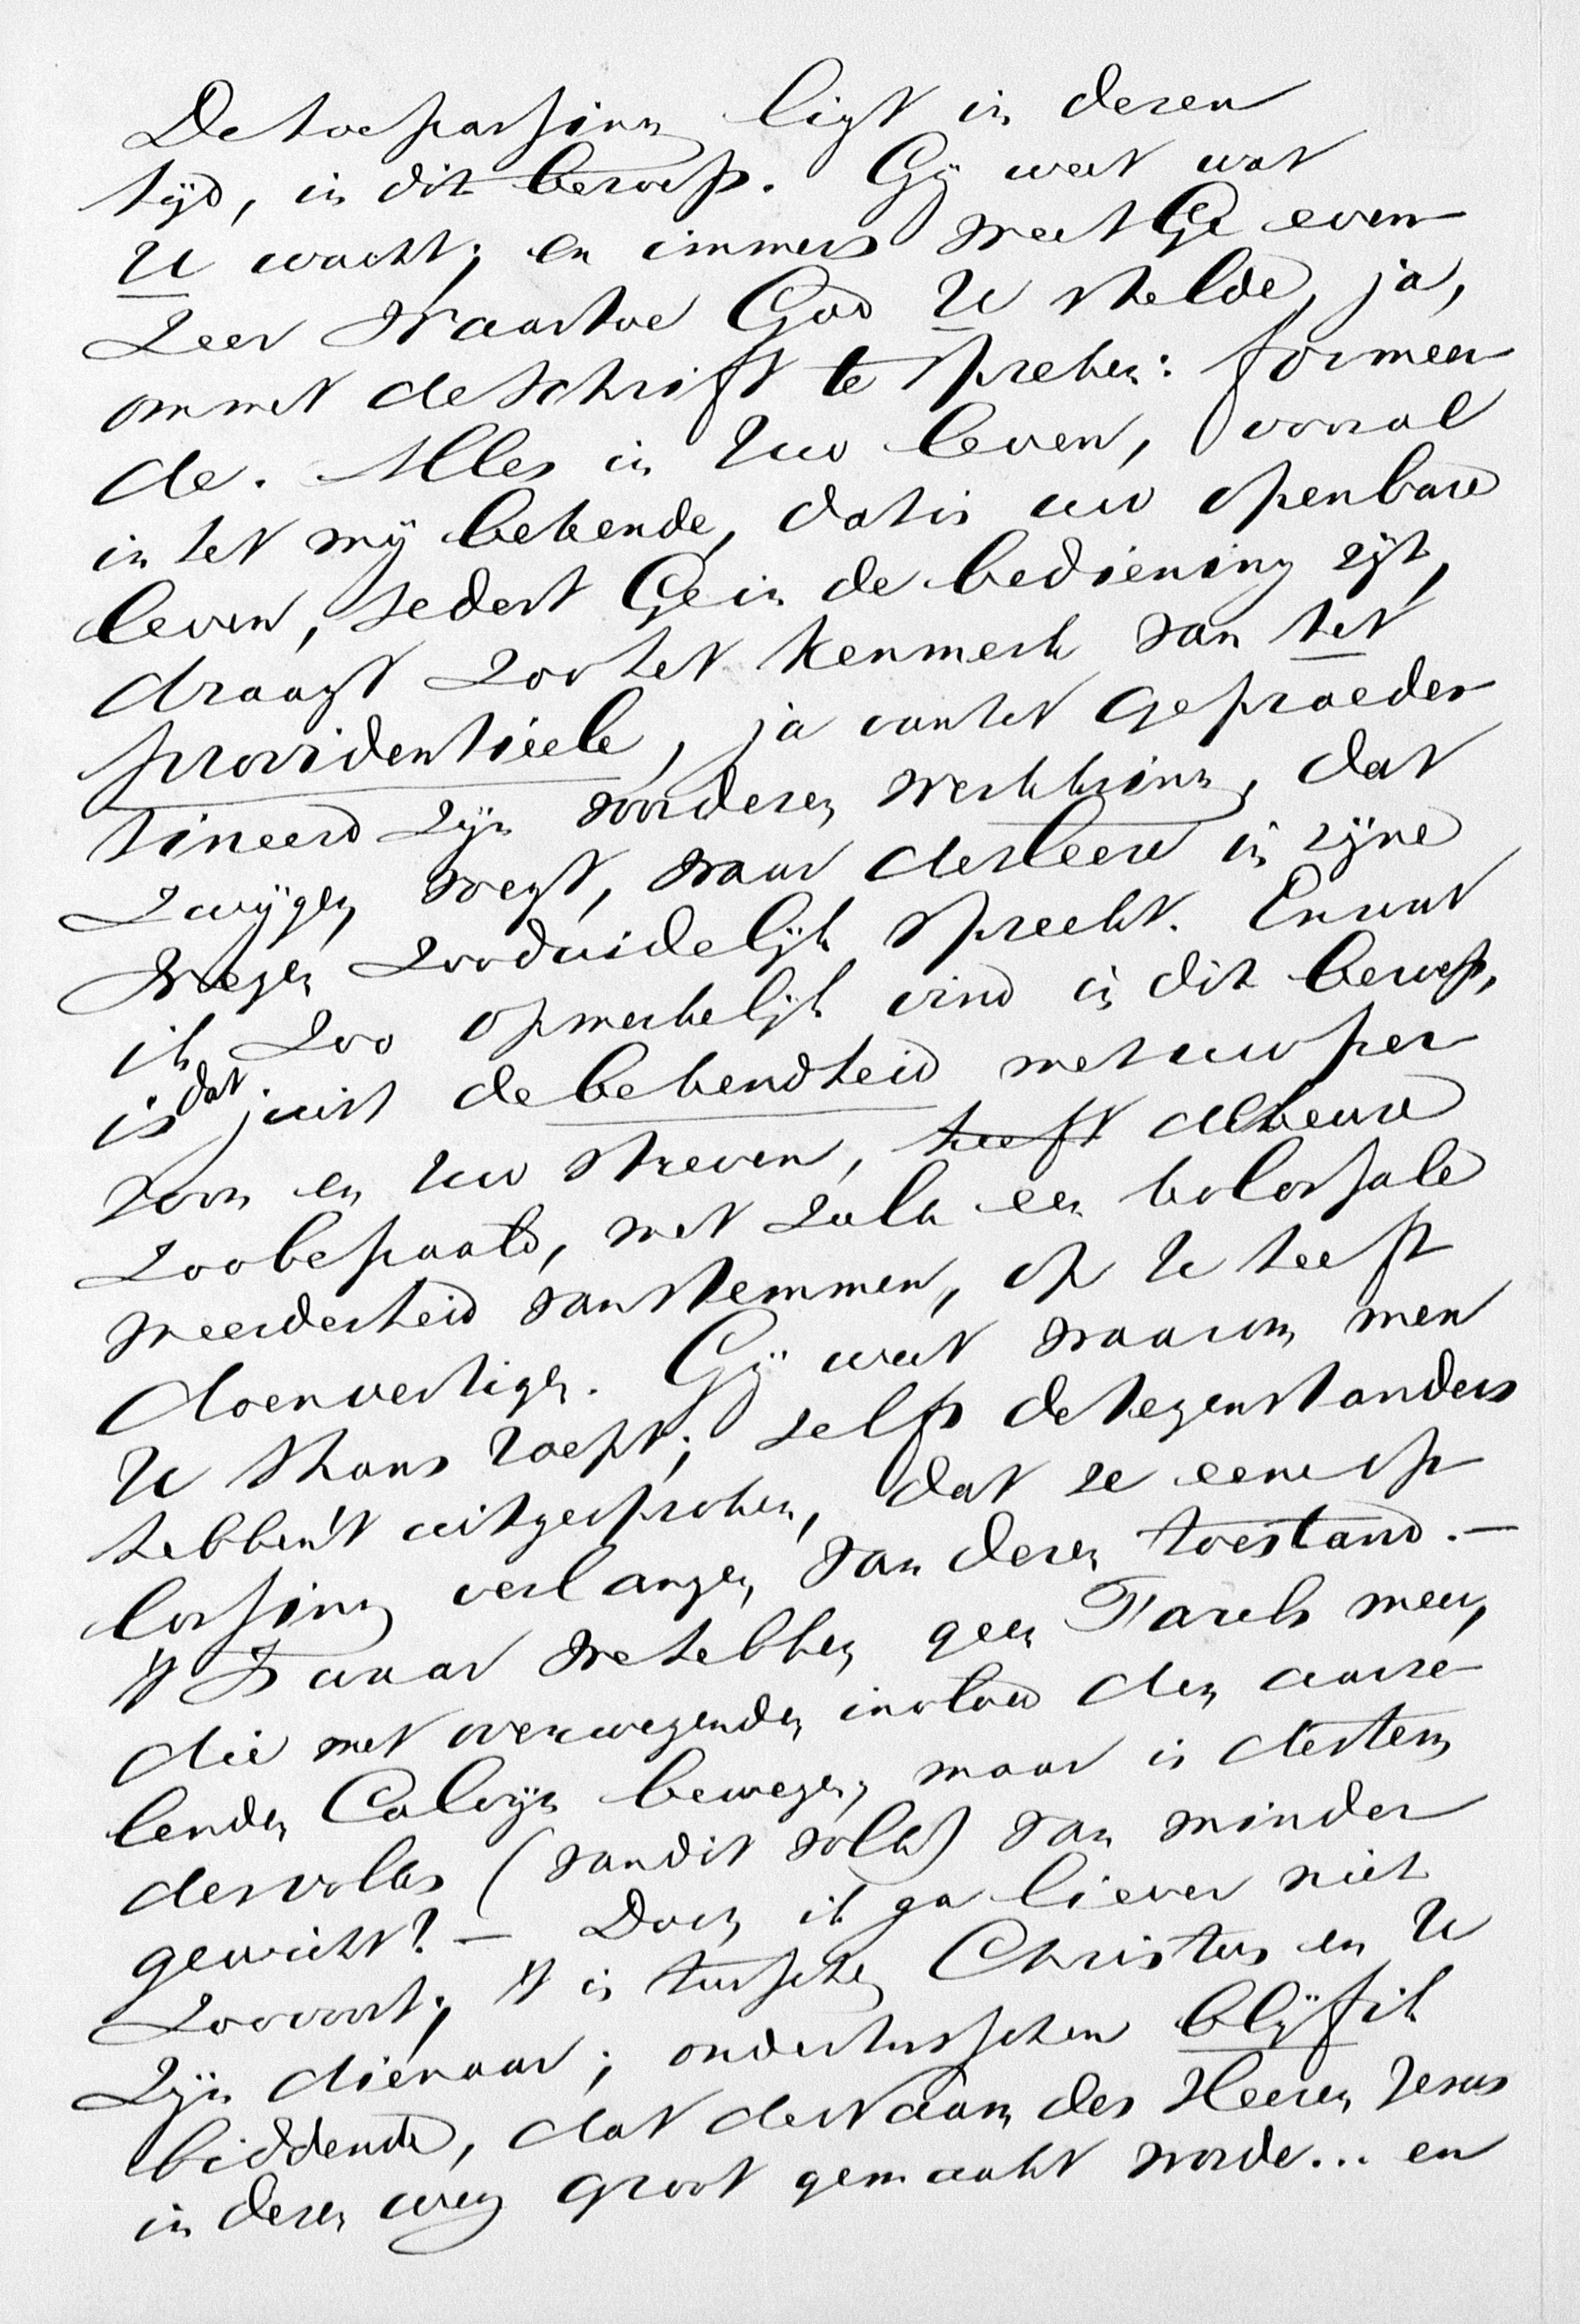 De toepassing ligt in dezen
tijd, in dit beroep. Gij weet wat
U wacht; en immers weet Ge even
zeer waartoe God U stelde, ja,
om met de Schrift te spreken: formeer
de. Alles in Uw leven, vooral
in het mij bekende, dat is uw openbare
leven, sedert Ge in de bediening zijt,
draagt zoo het kenmerk van het
providentieele, ja van het gepraedes
tineerd zijn voor dezen werkkring, dat
zwijgen voegt, waar de Heere in zijne
wegen zoo duidelijk spreekt. En wat
ik zoo opmerkelijk vind in dit beroep,
is dat juist de bekendheid met uw per
soon en Uw streven, heeft de keuze
zoo bepaald, met zulk een kolossale
meerderheid van stemmen, op U heeft
doen vestigen. Gij weet waarom men
U thans roept; zelfs de tegenstanders
hebben 't uitgesproken, dat ze eene op
lossing verlangen van dezen toestand. —
't Is waar we hebben geen Farels meer,
die met overwegenden invloed den aarze
lenden Calvijn bewegen, maar is de stem
des volks (van dit volk) van minder
gewicht? — Doch ik ga liever niet
zoo voort; 't is tusschen Christus en U
Zijn dienaar; ondertusschen blijf ik
biddende, dat de Naam des Heeren Jezus
in dezen weg groot gemaakt worde... en